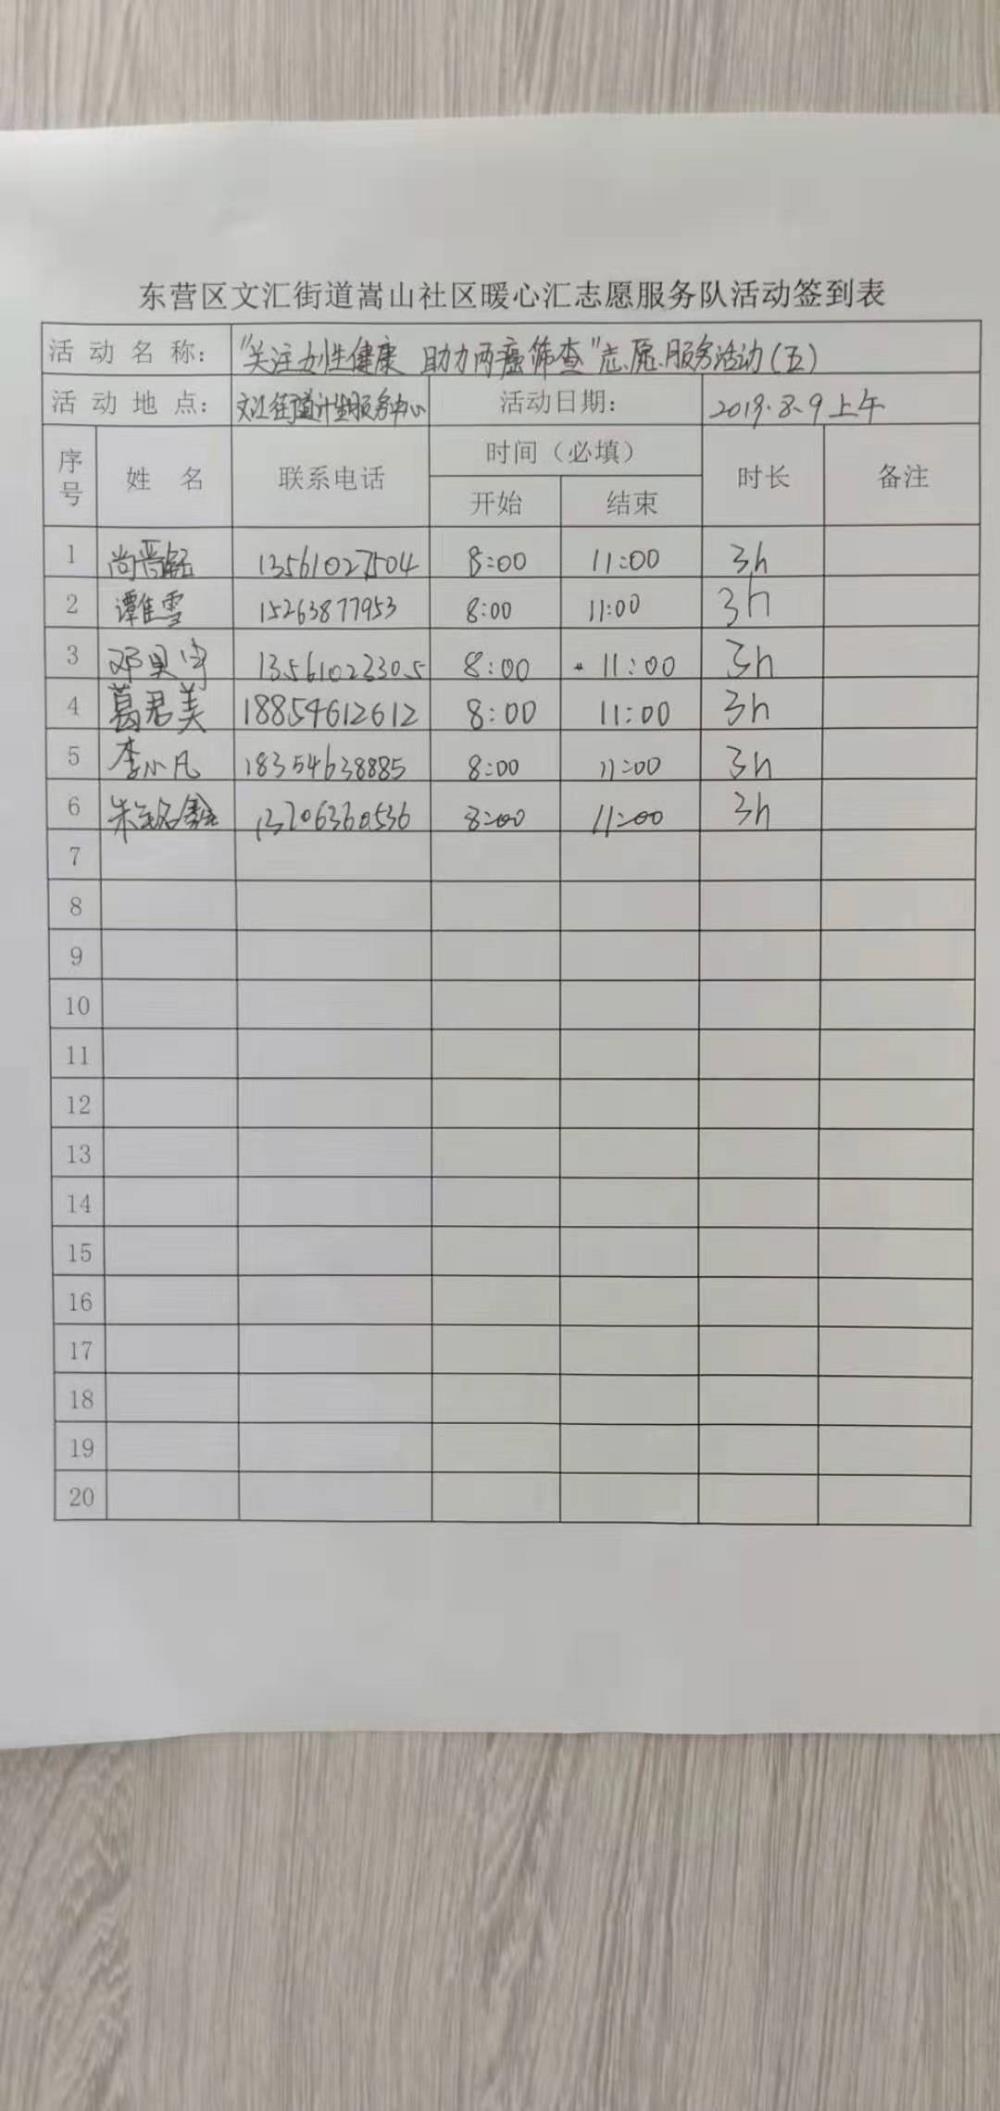 东营区文汇街道嵩山社区暖心汇志愿服务队活动签到表
活动名称： "关注女性健康 助力两癌筛查"志愿服务活动(五)
活动地点： 文汇街道计生服务中心 活动日期： 2019.8.9上午
序号 姓名 联系电话 时间（必填） 时长 备注
开始 结束
1 尚晋 13561027504 8:00 11:00 3h
2 谭雪 15263877953 8:00 11:00 3h
3 邓贝宁 13561023305 8:00 11:00 3h
4 葛君美 18854612612 8:00 11:00 3h
5 李小凡 18354638885 8:00 11:00 3h
6 朱铭鑫 13706360536 8:00 11:00 3h
7
8
9
10
11
12
13
14
15
16
17
18
19
20